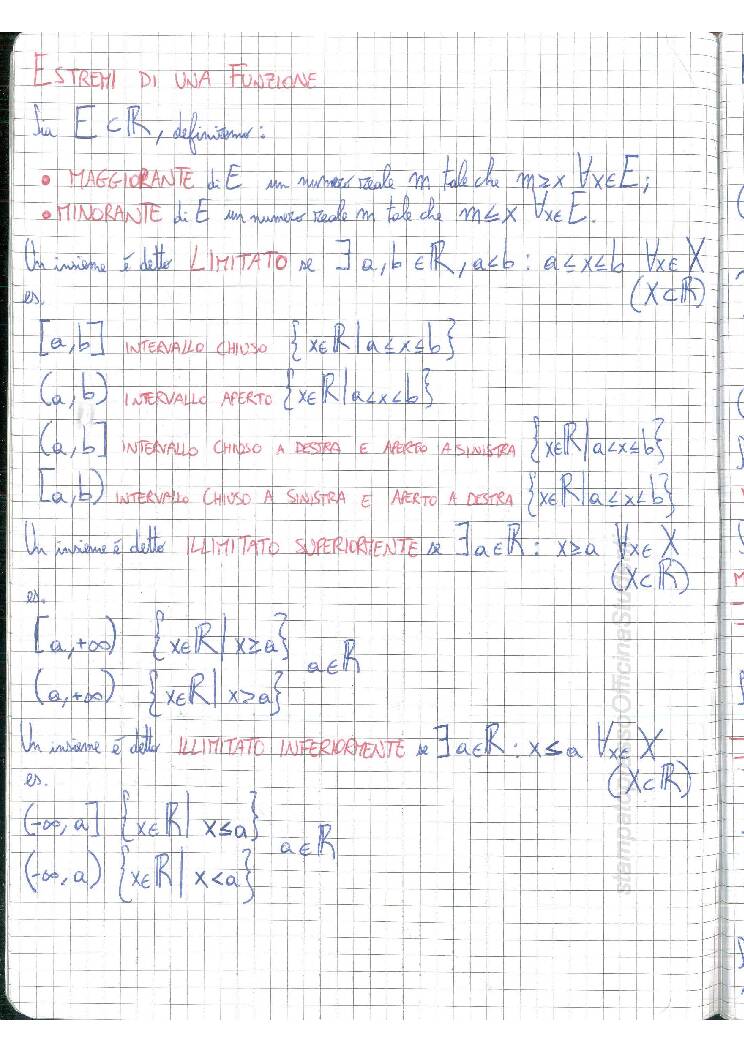 ESTREMI DI UNA FUNZIONE
Sia E⊂ℝ, definiamo:
• MAGGIORANTE di E un numero reale m tale che m≥x ∀x∈E;
• MINORANTE di E un numero reale m tale che m≤x ∀x∈E.
Un insieme è detto LIMITATO se ∃ a,b ∈ℝ, a<b : a≤x≤b ∀x∈X
(X⊂ℝ)
es.
[a,b] INTERVALLO CHIUSO {x∈ℝ|a≤x≤b}
(a,b) INTERVALLO APERTO {x∈ℝ|a<x<b}
(a,b] INTERVALLO CHIUSO A DESTRA E APERTO A SINISTRA {x∈ℝ|a<x≤b}
[a,b) INTERVALLO CHIUSO A SINISTRA E APERTO A DESTRA {x∈ℝ|a≤x<b}
Un insieme è detto ILLIMITATO SUPERIORMENTE se ∃a∈ℝ: x≥a ∀x∈X
(X⊂ℝ)
es.
[a,+∞) {x∈ℝ| x≥a}
a∈ℝ
(a,+∞) {x∈ℝ| x>a}
Un insieme è detto ILLIMITATO INFERIORMENTE se ∃a∈ℝ: x≤a ∀x∈X
(X⊂ℝ)
es.
(-∞,a] {x∈ℝ| x≤a}
a∈ℝ
(-∞,a) {x∈ℝ| x<a}